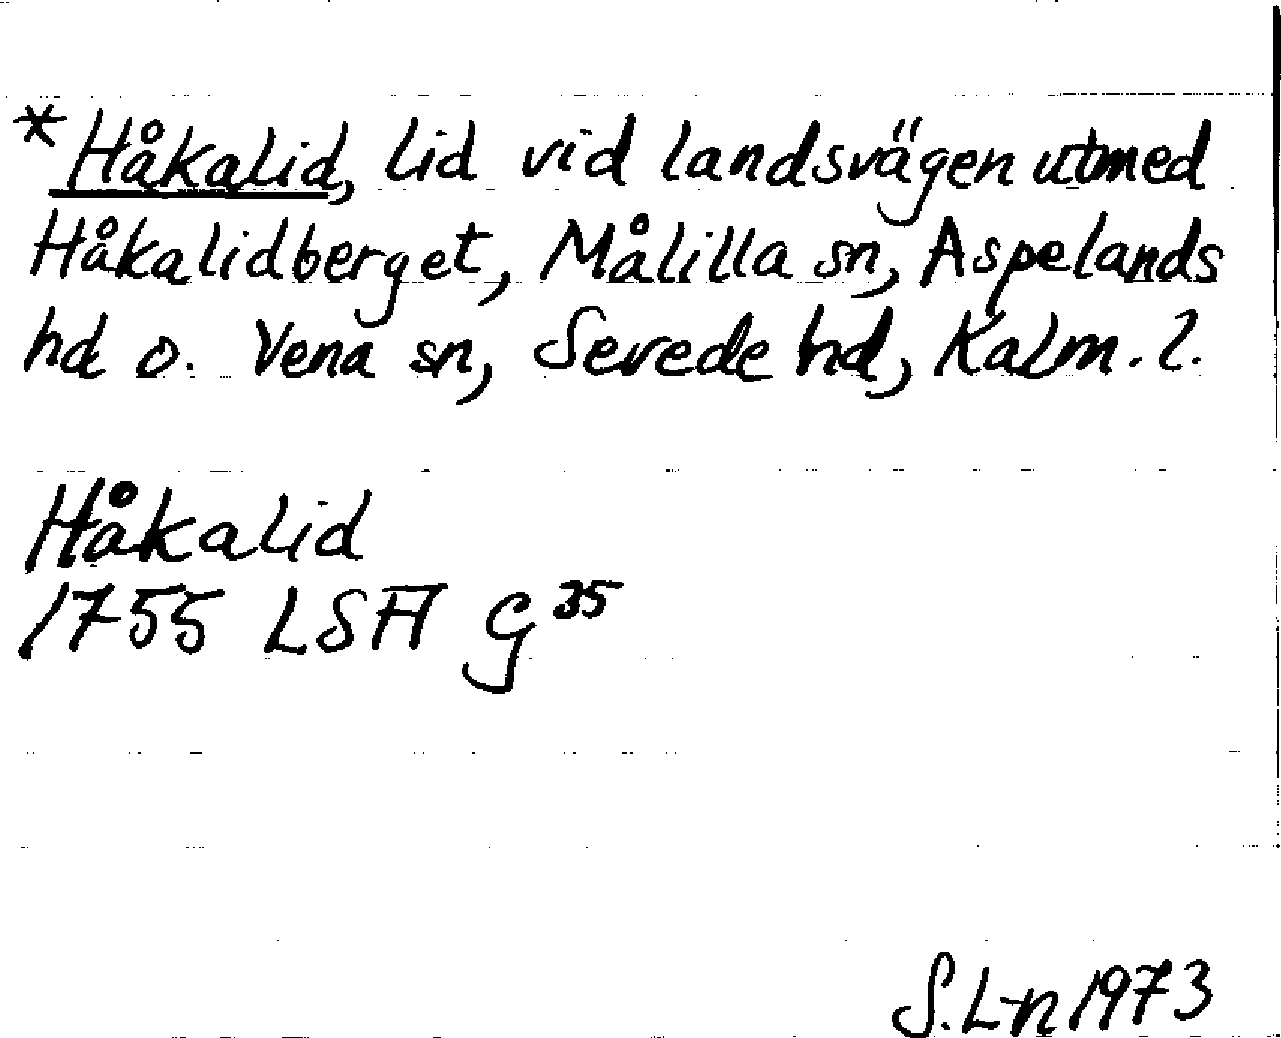 *Håkalid, lid vid landsvägen utmed
Håkalidberget, Målilla sn, Aspelands
hd o. Vena sn, Sevede hd, Kalm. l.
Håkalid
1755 LSA G³⁵
S.L-n 1973